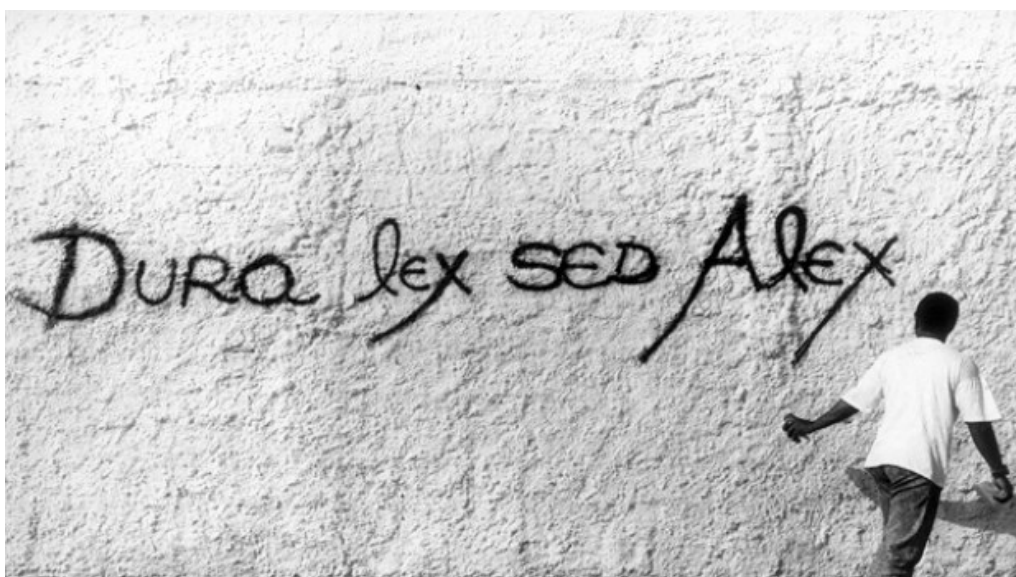 Dura lex sed Alex